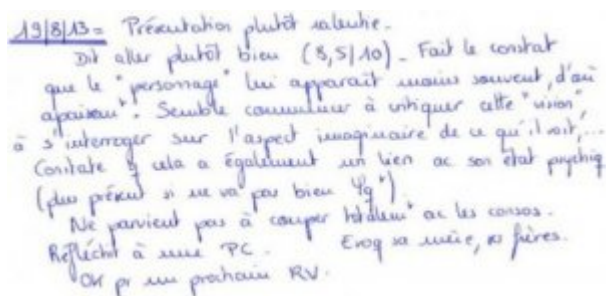 19/8/13 = Présentation plutôt ralentie.
Dit aller plutôt bien (8,5/10). Fait le constat
que le "personnage" lui apparait moins souvent, d'où
apaisemt. Semble commencer à critiquer cette "vision",
à s'interroger sur l'aspect imaginaire de ce qu'il voit,...
Constate q cela a également un lien ac son état psychiq
(plus présent si ne va pas bien ψq*)
Ne parvient pas à couper totalemt ac les consos.
Réfléchit à une PC. Evoq sa mère, ses frères.
OK pr un prochain RV.